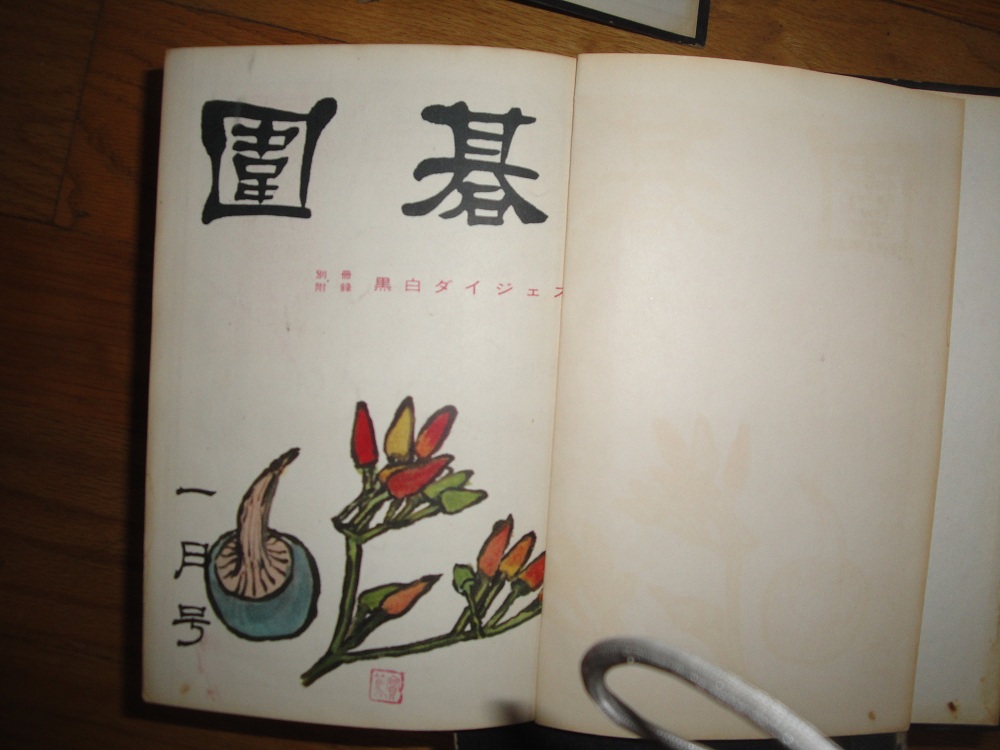 圍碁
別冊
附録
黒白ダイジェス
一月号